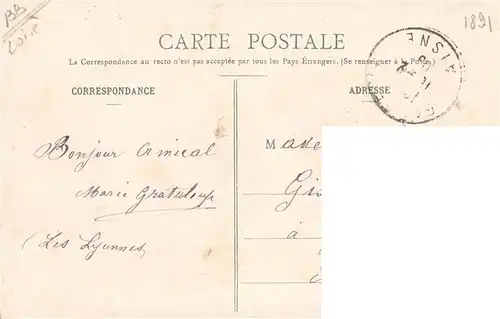 BB
Loire
1891
CARTE POSTALE
La Correspondance au recto n'est pas acceptée par tous les Pays Étrangers. (Se renseigner à la Poste.)
CORRESPONDANCE
ADRESSE
AISNE
Bonjour Amical
Marie Grataloup
(Les Lyonnes)
Made
Gi
à